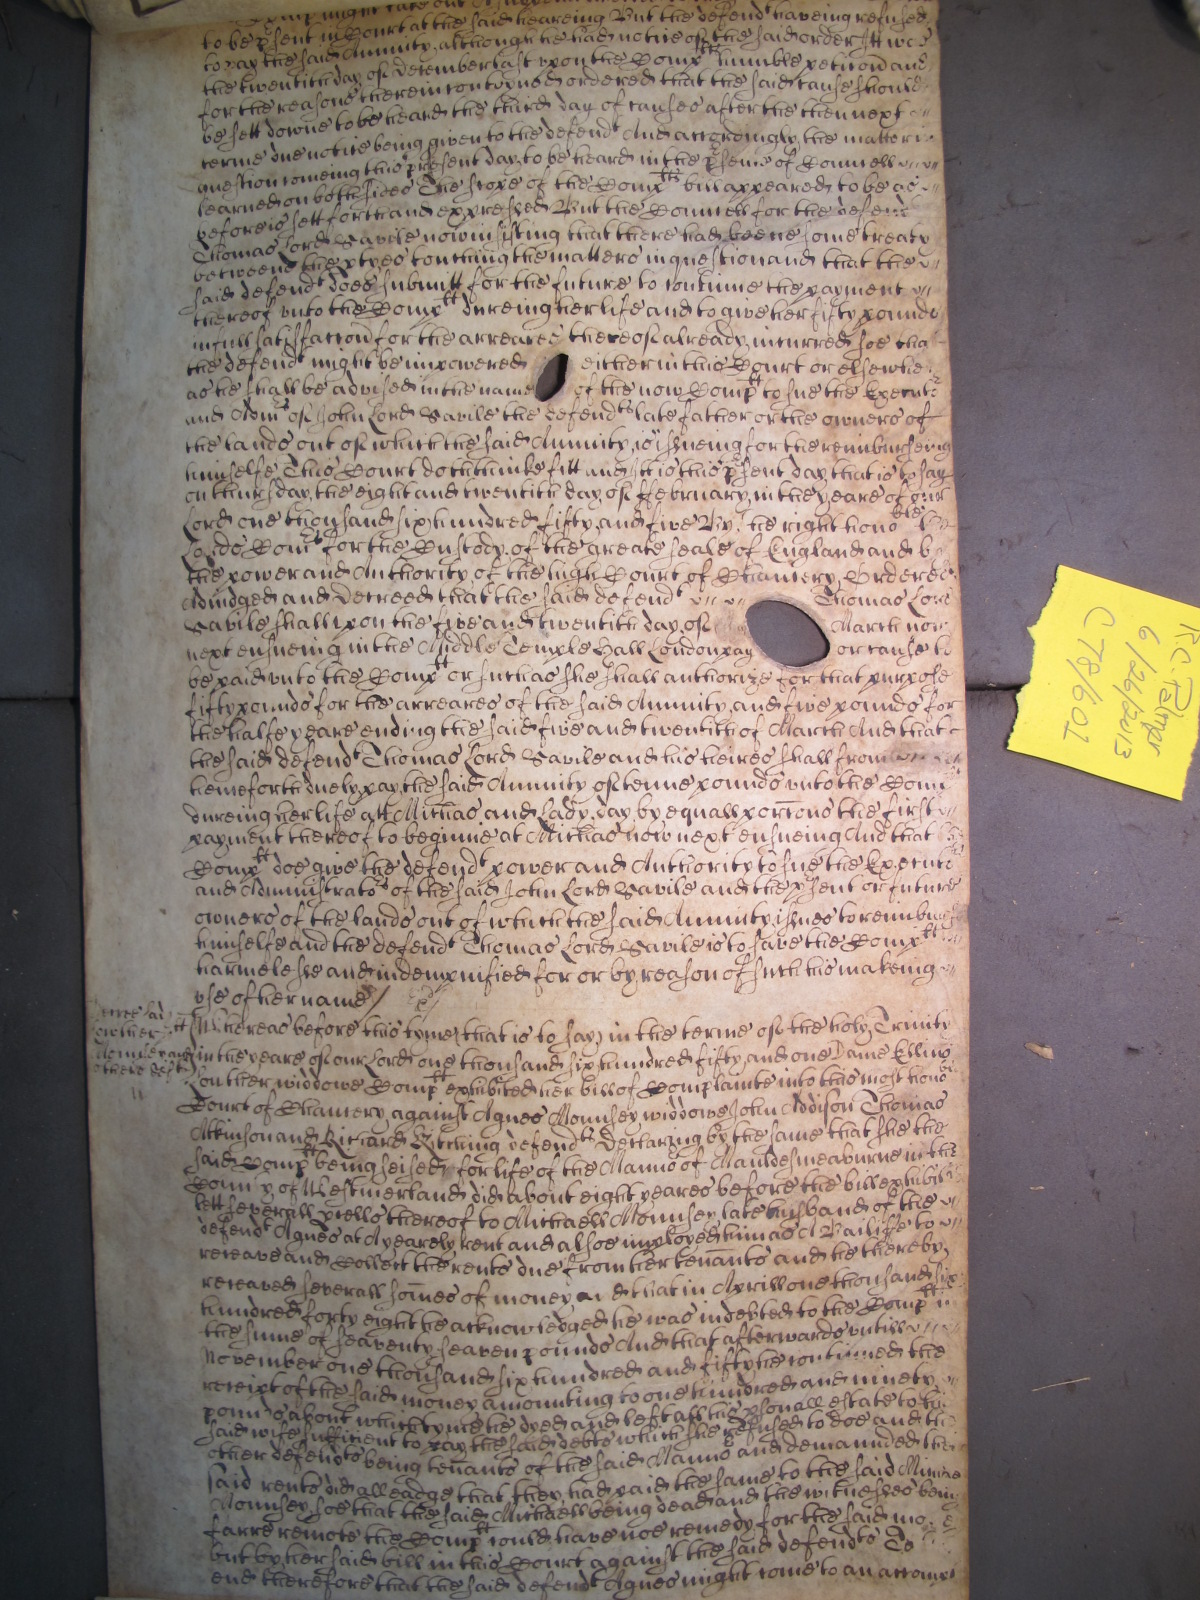 to be p̱sent in Court at the said heareing But the defend^t haveing refused
to pay the said Annuity, although he had notice of the said order It was
the twentith day of December last upon the Comp^lts humble peticōn and
for the reasons therein conteyned ordered that the said cause should
be sett downe to be heard the third day of causes after the then next
terme due notice being given to the defend^t And accordingly the matter in
question comeing this present day to be heard in the p̱sence of Councell
learned on both sides The scope of the Comp^lts bill appeared to be as
before is sett forth and expressed But the Councell for the defend^t
Thomas Lord Savile now insisting that there had beene some treaty
betweene the p̱tyes touching the matters in question and that the
said defend^t does submitt for the future to continue the payment
thereof unto the Comp^lt dureing her life and to give her fifty pounds
in full satisfaccōn for the arreares thereof already incurred soe that
the defend^t might be impowered either in this Court or elsewhere
as he shall be advised in the name of the now Comp^lt to sue the Execut^rs
and Adm^rs of John Lord Savile the defend^ts late father or the owners of
the lands out of which the said Annuity is issueing for the reimburseing
himselfe This Court doth thinke fitt and It is this p̱sent day that is to say
on thursday the eight and twentith day of ffebruary in the yeare of our
Lord one thousand six hundred fifty and five By the right hono^ble the
Lords Com^rs for the Custody of the greate seale of England and by
the power and Authority of the high Court of Chancery Ordered
Adiudged and Decreed that the said defend^t Thomas Lord
Savile shall upon the five and twentith day of March now
next ensueing in the Middle Temple Hall London pay or cause to
be paid unto the Comp^lt or such as she shall authorize for that purpose
fifty pounds for the arreares of the said Annuity and five pounds for
the halfe yeare ending the said five and twentith of March And that
the said defend^t Thomas Lord Savile and his heires shall from
henceforth duely pay the said Annuity of tenne pounds unto the Comp^lt
dureing her life att Mich̄as and Lady day by equall porc̄ons the first
payment thereof to beginne at Mich̄as now next ensueing And that
Comp^lt doe give the defend^t power and Authority to sue the Execut^rs
and Administrato^rs of the said John Lord Savile and the p̱sent or future
owners of the lands out of which the said Annuity issues to reimburse
himselfe and the defend^t Thomas Lord Savile is to save the Comp^lt
harmelesse and indempnified for or by reason of such his makeing
use of her name /
Whereas before this tyme that is to say in the terme of the holy Trinity
in the yeare of our Lord one thousand six hundred fifty and one Dame Ellino^r
Lowther widdowe Comp^lt exhibited her bill of Complainte into this most hono^ble
Court of Chancery against Agnes Mounsey widdowe John Addison Thomas
Atkinson and Richard Kitching defend^ts Declaring by the same that she the
said Comp^lt being seised for life of the Manno^r of Mauldesmeaburne in the
County of Westmerland did about eight yeares before the bill exhibited
lett severall p̱cells thereof to Michaell Mounsey late husband of the
defend^t Agnes at A yearely rent and alsoe imployed him as A Bailiffe to
receave and Collect the rents due from her tenānts and he thereby
receaved severall som̄es of money and that in Aprill one thousand six
hundred forty eight he acknowledged he was indebted to the Comp^lt in
the summe of seaventy seaven pounds And that afterwards untill
November one thousand six hundred and fifty he continued the
receipt of the said money amounting to one hundred and ninety
pounds about which tyme he dyed and left all his p̱sonall estate to his
said wife sufficient to pay the said debts which she refused to doe and the
other defend^ts being tenānts of the said Manno^r and demannded their
said rents did alleadge that they had paid the same to the said
Mounsey soe that the said Michaell being dead and the witnesses being
farre remote the Comp^lt could have noe remedy for the said
but by her said bill in this Court against the said defend^ts To
end therefore that the said defend^t Agnes might come to an accompt
R.C. Palmer
6/26/2013
C78/601